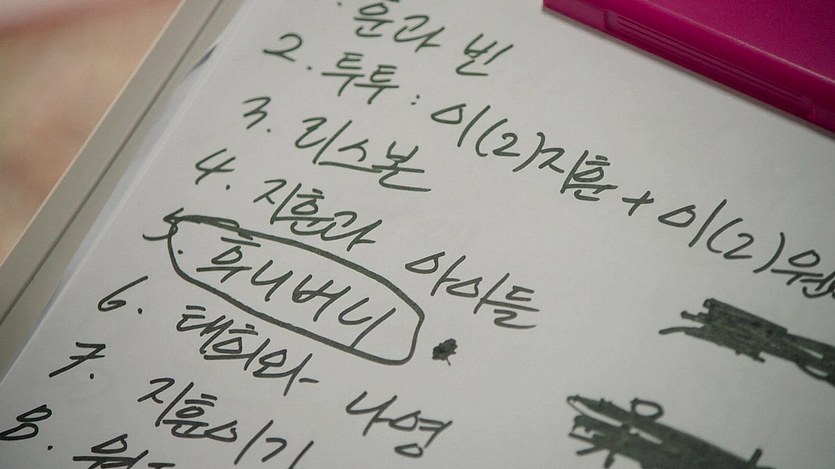 훈과 빈
2. 투투 : 이(2)지훈 + 이(2)원
3. 리스본
4. 지훈과 아이들
5. 후니버니
6. 태희와 나영
7. 지훈이기
8.